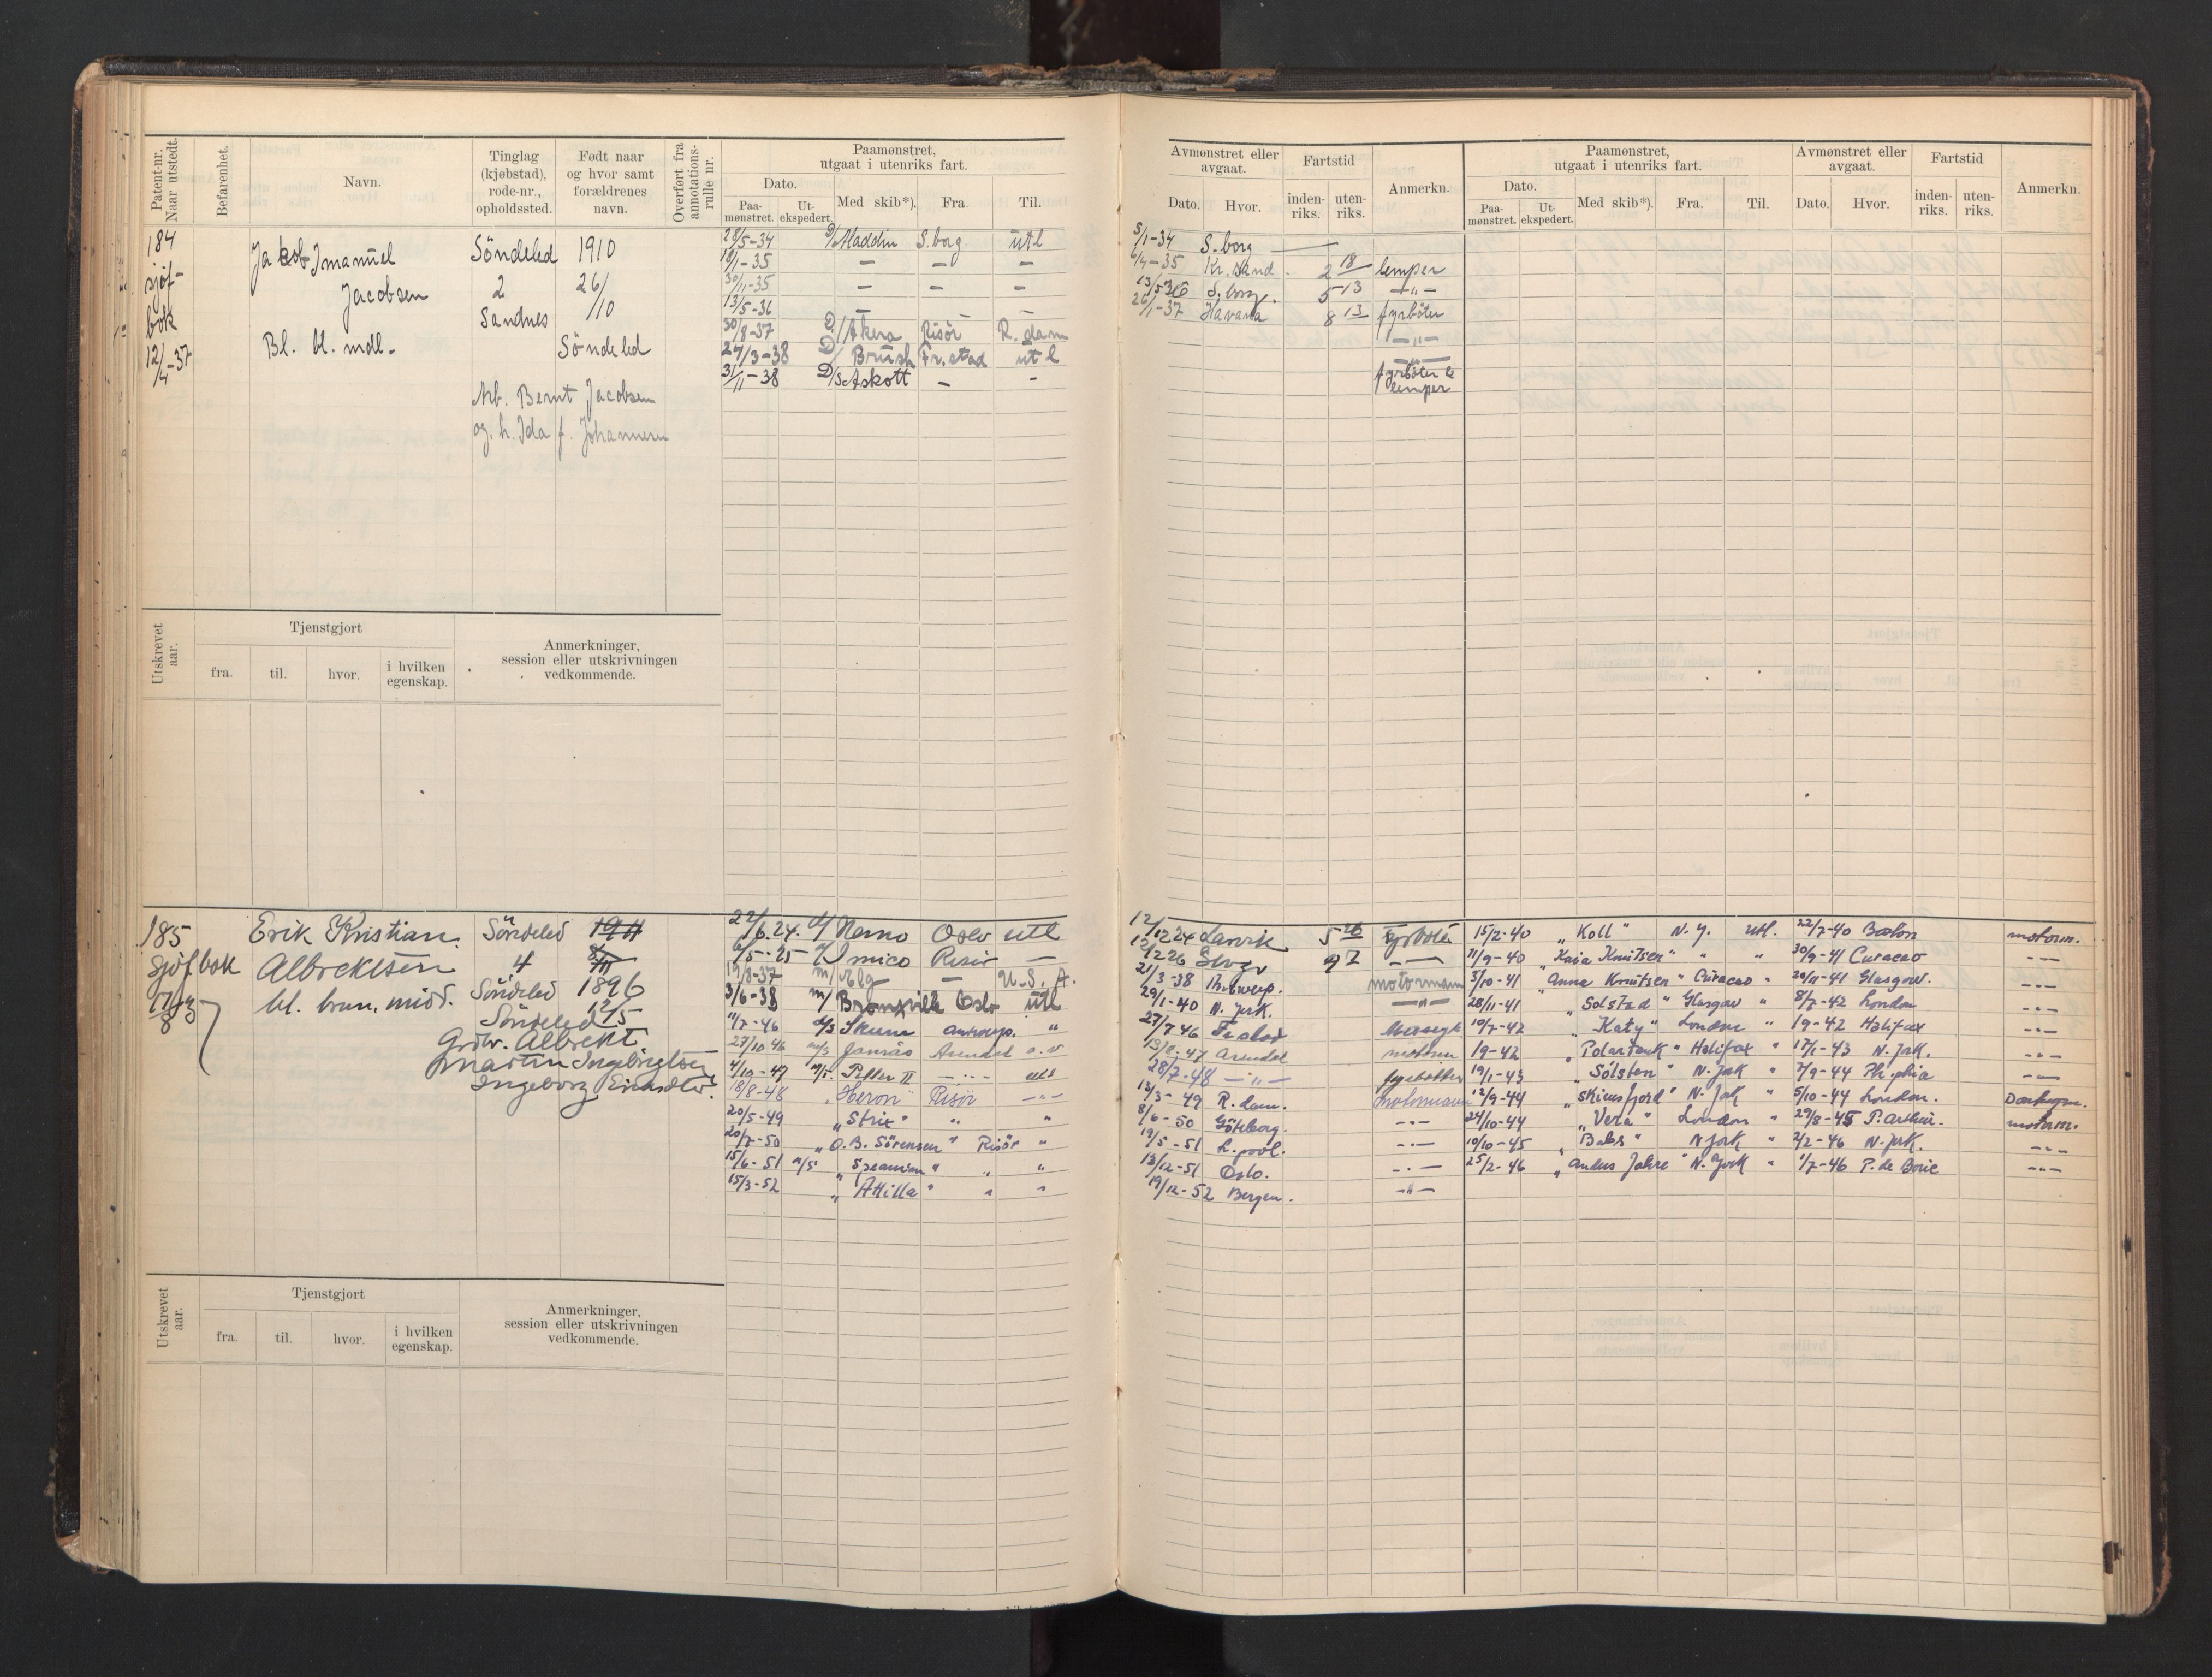 Patent-nr. Naar utstedt.
Befarenhet.
Navn.
Tinglag (kjøbstad), rode-nr., opholdssted.
Født naar og hvor samt forældrenes navn.
Overført fra annotations-rulle nr.
Paamønstret, utgaat i utenriks fart.
Dato.
Paa-mønstret.
Ut-ekspedert.
Med skib*).
Fra.
Til.
184
sjøf-
bok
12/4-37
Jakob Imanuel
Jacobsen
Bl. bl. mdl.
Söndeled
2
Sandnes
1910
26/10
Söndeled
Arb. Bernt Jacobsen
og h. Ida f. Johannesen
28/5-34 D/ Aladdin S.borg utl
18/1-35 — — —
30/11-35 — — —
13/5-36 —
30/8-37 D/ Akera Risör R.dam
24/3-38 D/ Brush Fr.stad utl
31/11-38 D/S Askott — -
Utskrevet aar.
Tjenstgjort
fra.
til.
hvor.
i hvilken egenskap.
Anmerkninger, session eller utskrivningen vedkommende.
185
Sjöf bok
Erik Kristian
Albrektsen
bl. brun, midd.
Söndeled
4
Söndeled
1911
1896
12/5
Söndeled
Grdbr. Albrekt
Martin Ingebrigtsen
Ingeborg
22/6.24. d/ Nemo Oslo utl
6/5-25 d/ Imico Risör —
19/8-37 m/ — U.S.A.
3/6-38 m/ Bronxville Oslo utl
11/7-46 d/s Skum Antwerp. "
27/10 46 m/s Jannäs Arendal
4/10-47 m/s. Petter II —"— utl
18/8-48 „Heron" Risör —"—
20/5-49 „Strix" " "
20/7-50 „O.B. Sörensen" Risör "
15/6-51 m/s " " "
15/3-52 „Attilla" " "
Utskrevet aar.
Tjenstgjort
fra.
til.
hvor.
i hvilken egenskap.
Anmerkninger, session eller utskrivningen vedkommende.
Avmønstret eller avgaat.
Dato.
Hvor.
Fartstid
inden-riks.
uten-riks.
Anmerkn.
Paamønstret, utgaat i utenriks fart.
Dato.
Paa-mønstret.
Ut-ekspedert.
Med skib*).
Fra.
Til.
Avmønstret eller avgaat.
Dato.
Hvor.
Fartstid
inden-riks.
uten-riks.
Anmerkn.
5/1-34 S.borg —
6/4-35 Kr.sand 2 18 lemper
13/5 36 S.borg. 5 13 —"—
26/1-37 Havana 8 13 fyrböter
—"—
fyrböter &
lemper
12/12 24 Larvik 5 26 Fyrböter
12/2 26 9 7 —
21/3-38 motormann
29/1-40 N. York. —"—
27/7 46 Fr.stad
13/8-47 Arendal motorm
28/7-48 —"— fyrbötter
13/3-49 R.dam. motormann
8/6-50 Göteborg. —"—
19/5-51 L.pool. —"—
13/12-51 Oslo. —"—
19/12-52 Bergen. —"—
15/2-40 „Koll" N.Y. utl. 22/7-40 Boston motorm.
11/9-40 „Kaia Knutsen" " " 30/9-41 Curacao —"—
3/10-41 „Anna Knutsen" Curacao " 20/11-41 Glasgow. —"—
28/11-41 „Solstad" Glasgow " 8/7-42 London —"—
10/7-42 „Katy" London " 19-42 Halifax —"—
19-42 „Polartank" Halifax " 17/1-43 N. York. —"—
19/1-43 „Solsten" N. York " 7/9-44 Ph.phia —"—
12/9-44 „Skiensfjord" N. York " 5/10-44 London. Donkeym.
24/10-44 „Vera" London " 29/8-45 P. Arthur. motorm.
10/10-45 „Bales" N York " 2/2-46 N. York. —"—
25/2-46 „Anders Jahre" N. York " 1/7-46 P. de Bouc —"—